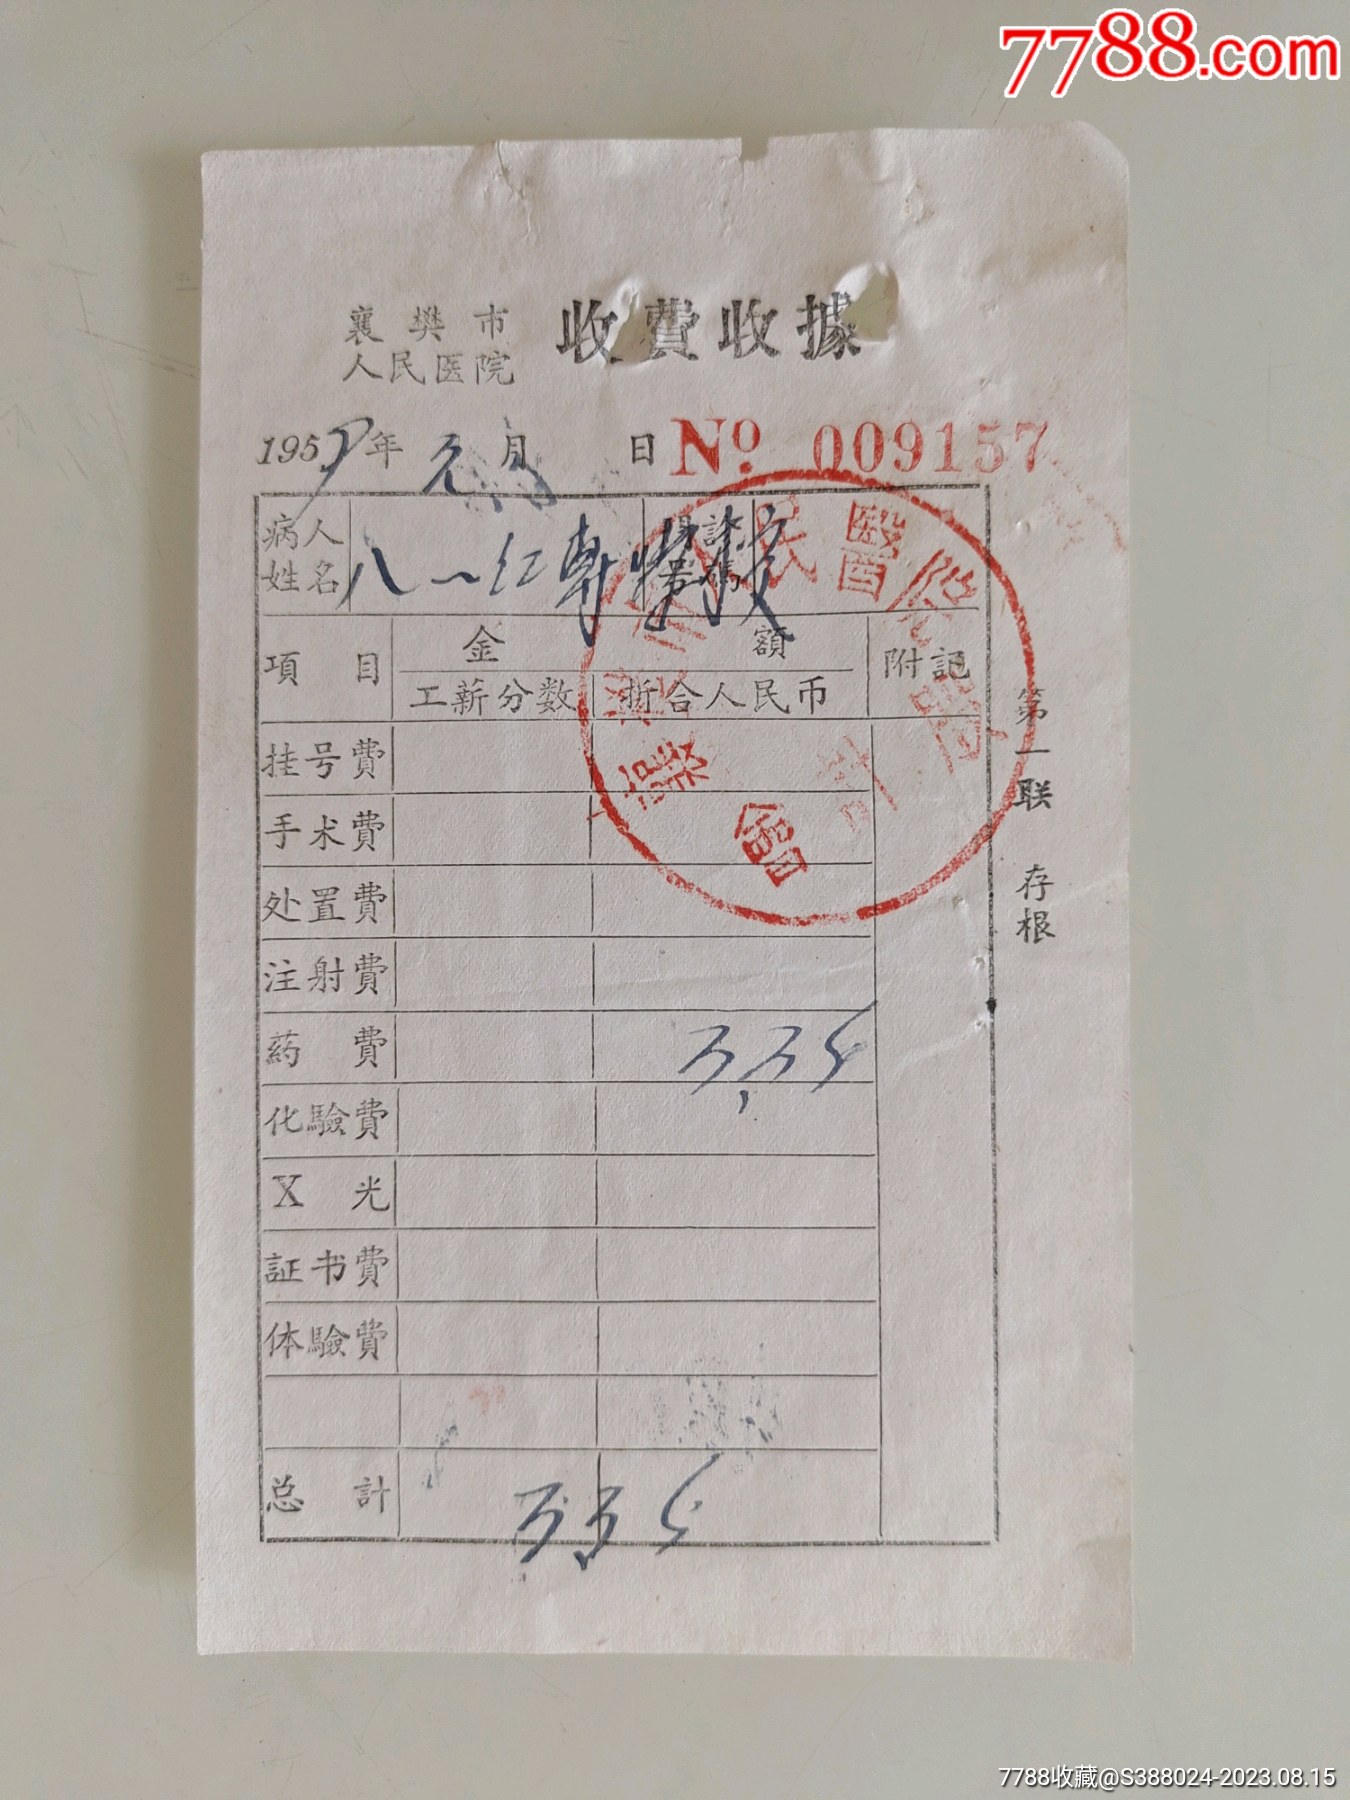 7788.com
襄樊市 收費收據
人民医院
1959年 元月 日 Nº 009157
病人姓名 八一红專学校 門診号碼
項目 金額 附記
工薪分数 折合人民币
挂号費
手术費
处置費
注射費
葯費 3.35
化驗費
X光
証书費
体驗費
总計 3.35
第一联 存根
7788收藏@S388024-2023.08.15